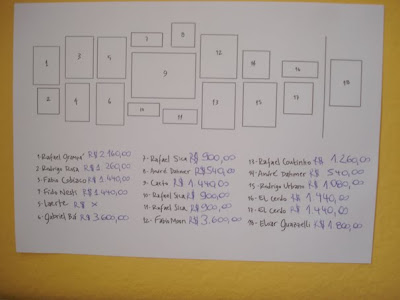 7
8
1
3
5
9
12
18
2
4
6
10
11
13
15
17
1- Rafael Grampá R$ 2.160,00
2- Rodrigo Rosa R$ 1.260,00
3- Fabio Cobiaco R$ 1.440,00
4- Fido Nesti R$ 1.440,00
5- Laerte R$ x
6- Gabriel Bá R$ 3.600,00
7- Rafael Sica R$ 900,00
8- André Dahmer R$ 540,00
9- Caeto R$ 1.440,00
10- Rafael Sica R$ 900,00
11- Rafael Sica R$ 900,00
12- Fabio Moon R$ 3.600,00
13- Rafael Coutinho R$ 1.260,00
14- André Dahmer R$ 540,00
15- Rodrigo Urbano R$ 1.080,00
16- EL Cerdo R$ 1.440,00
17- EL Cerdo R$ 1.440,00
18- Eloar Guazzelli R$ 1.800,00